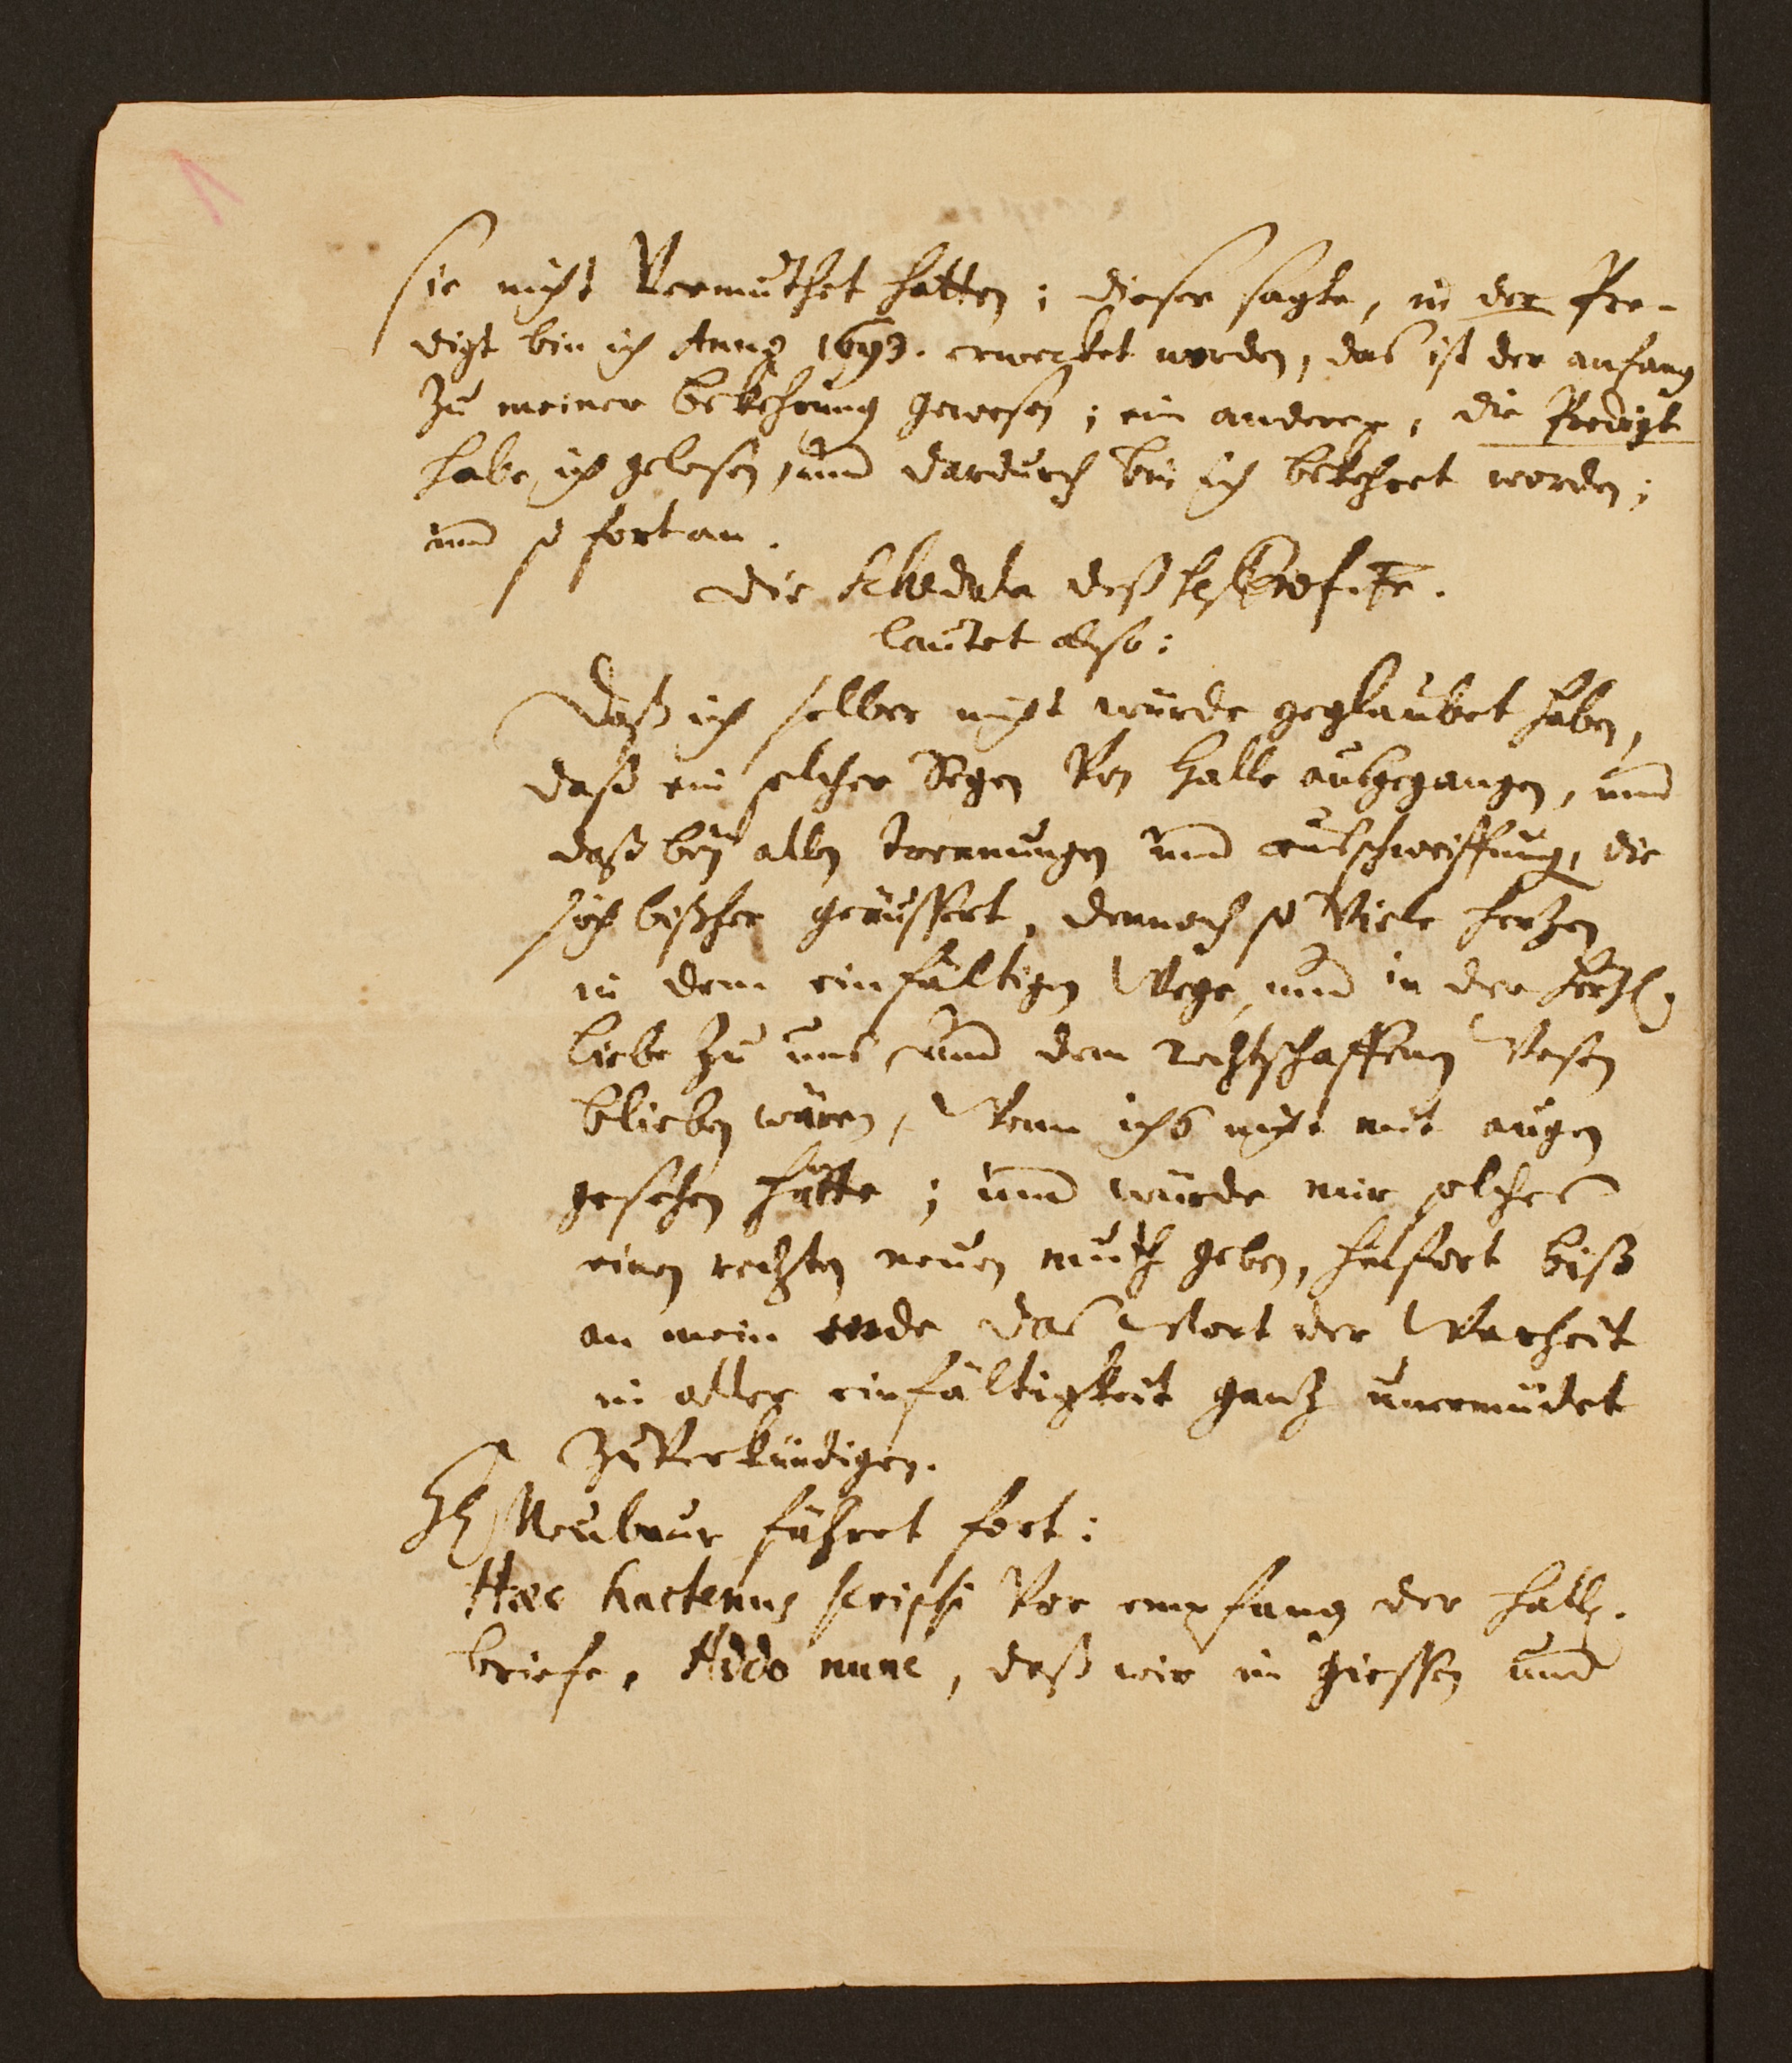 sie nicht Vermuthet hatten; dieser sagte, in der Pre-
digt bin ich Anno 1693. erwecket worden, das ist der anfang
zu meiner bekehrung gewesen; ein anderer, die Predigt
habe ich gelesen, und dardurch bin ich bekehret worden;
und so fortan.
Die Schedula deß H. Prof.
lautet also:
Daß ich selber nicht würde geglaubet haben,
daß ein solcher Segen Von Halle außgegangen, und
daß bey allen trennungen und außschweiffung, die
sich bißher geäussert, dennoch so Viele hertzen
in dem einfältigen Wege, und in der hertzl.
liebe zu uns und dem rechtschaffenen Wesen
blieben wären, Wenn ichs nicht mit augen
gesehen hätte; und würde mir solches
einen rechten neuen muth geben, hinfort biß
an mein ende das Wort der Warheit
in aller einfältigkeit gantz unermüdet
zu Verkündigen.
H. Neubaur fähret fort:
Haec hactenus scripsi Vor empfang der hall.
briefe. Addo nunc, daß wir in Giessen und